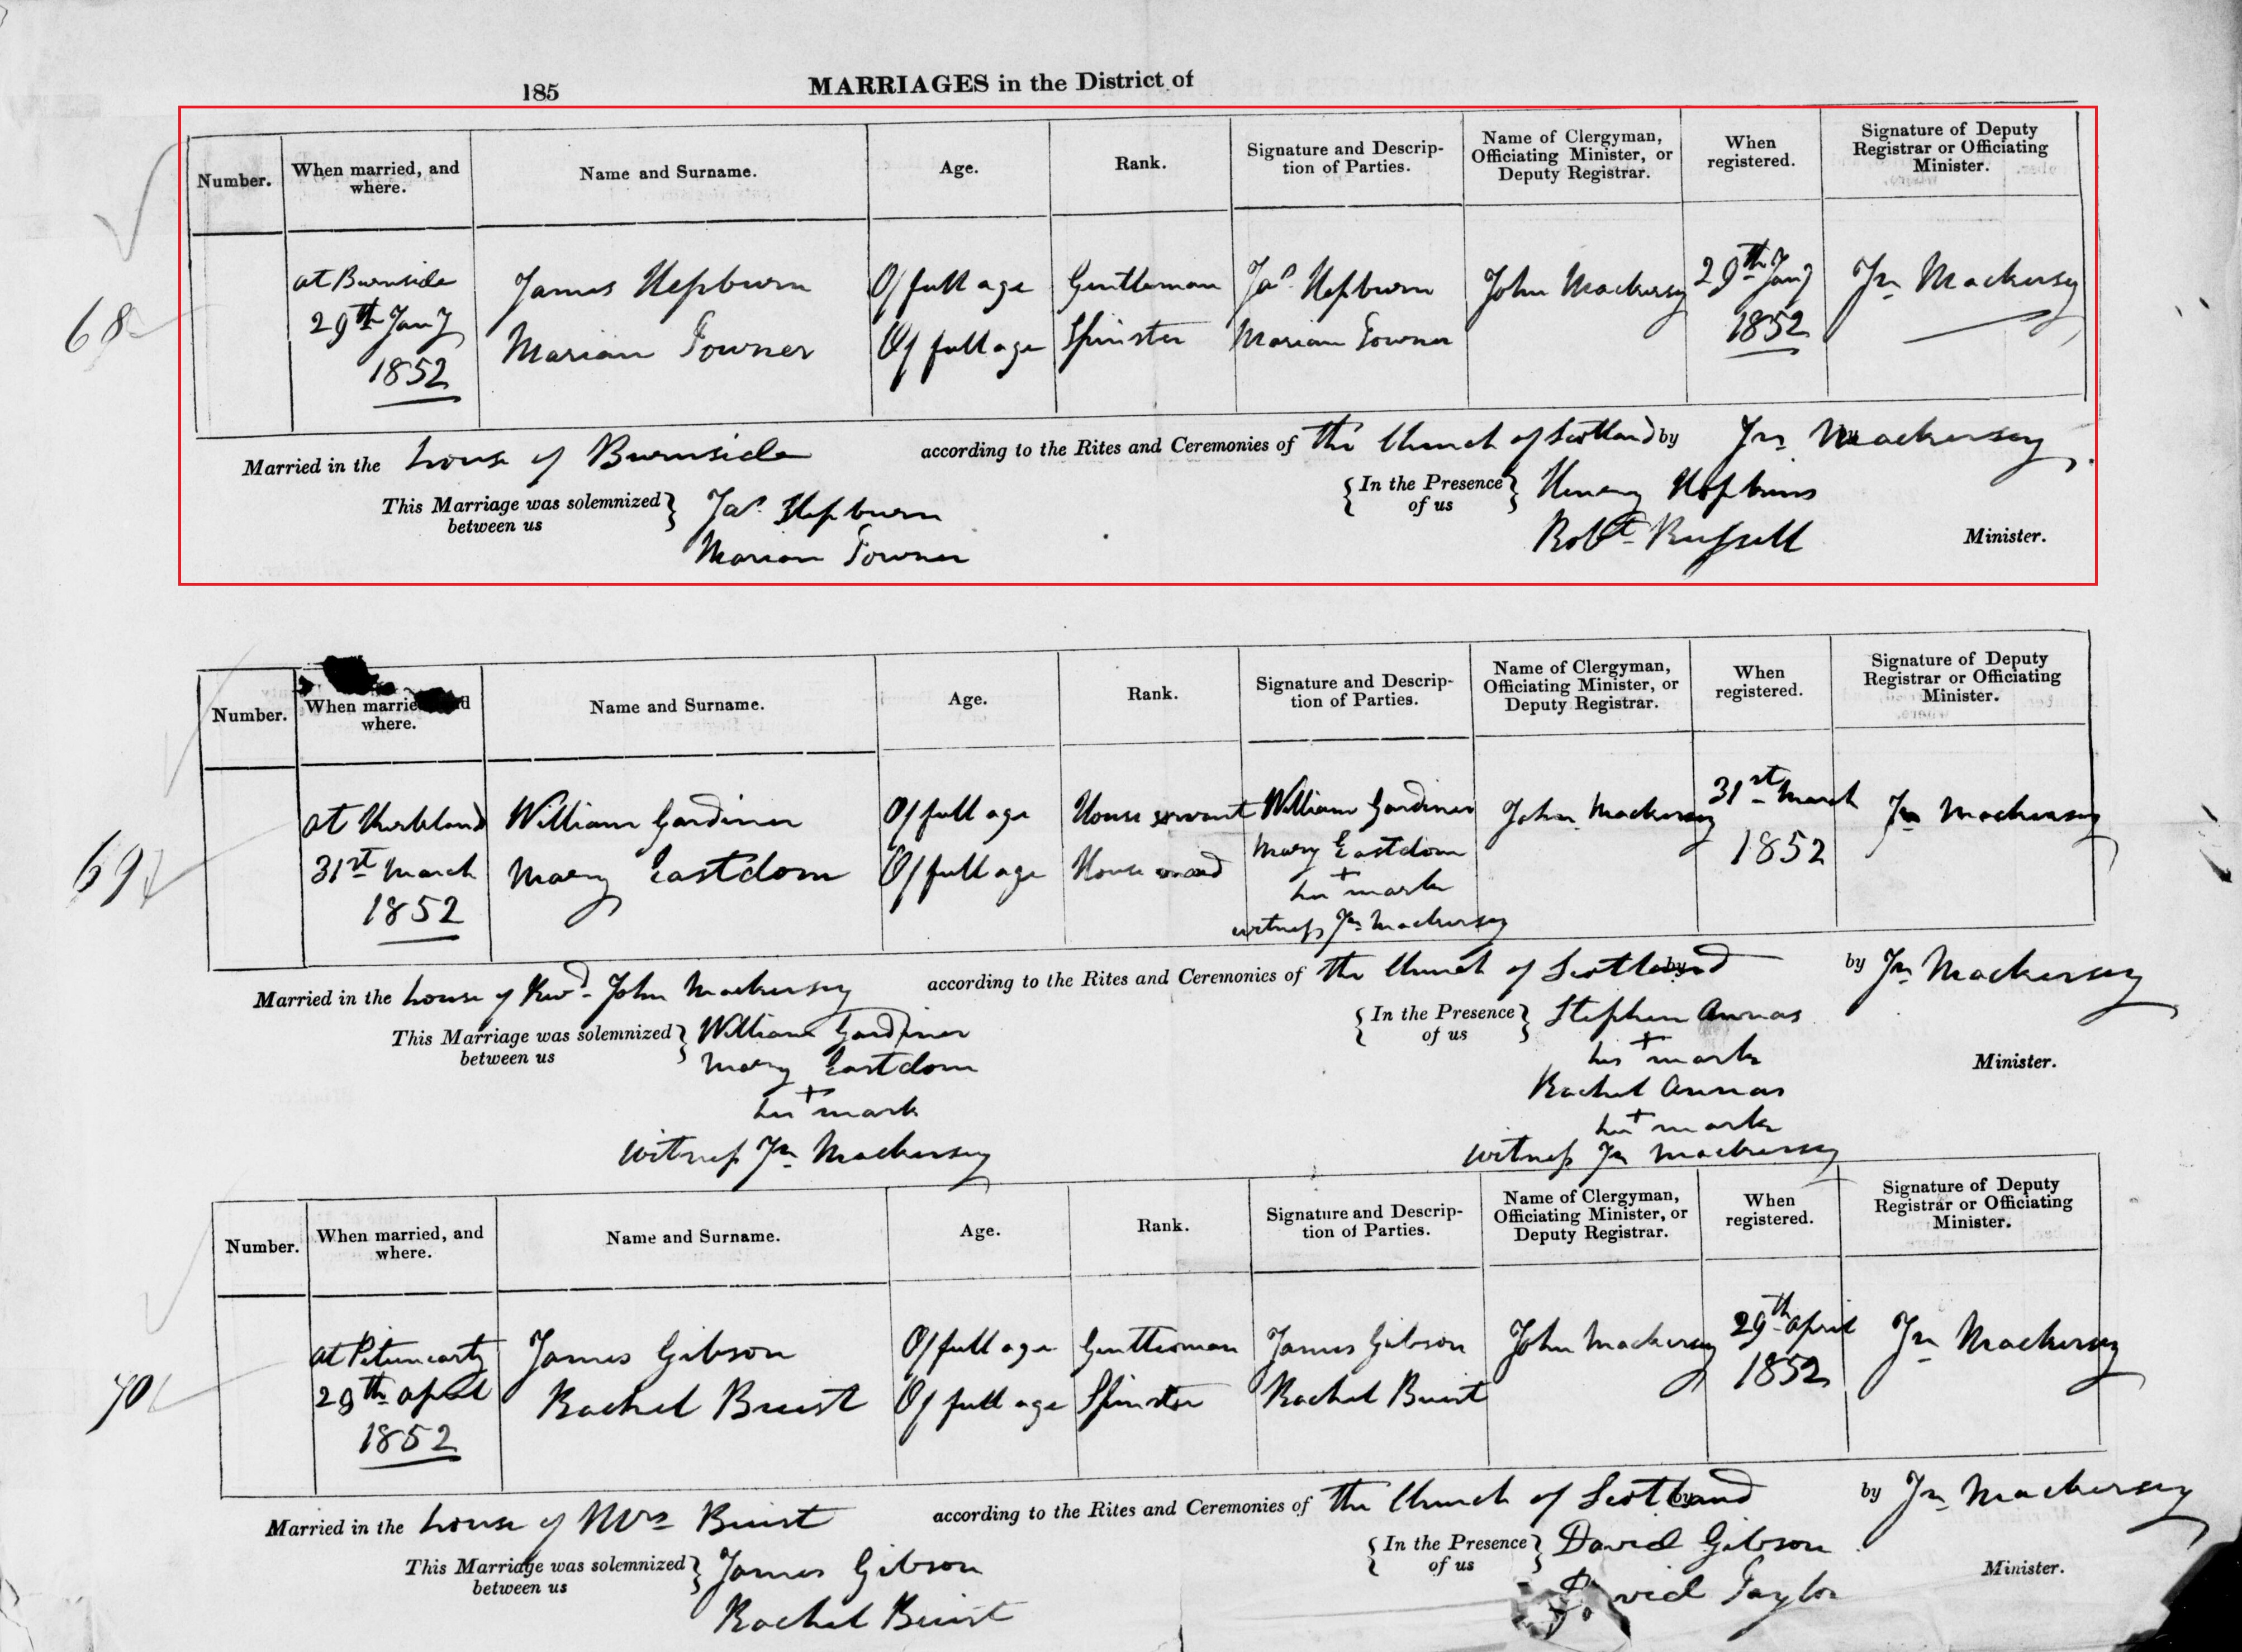 185 MARRIAGES in the District of
Number. When married, and where. Name and Surname. Age. Rank. Signature and Description of Parties. Name of Clergyman, Officiating Minister, or Deputy Registrar. When registered. Signature of Deputy Registrar or Officiating Minister.
68
at Burnside James Hepburn Of full age Gentleman Jas. Hepburn John Mackersey 29th Jany Jn Mackersey
29th Jany Marian Towner Of full age Spinster Marian Towner 1852
1852
Married in the house of Burnside according to the Rites and Ceremonies of the Church of Scotland by Jn Mackersey
This Marriage was solemnized between us } Jas. Hepburn { In the Presence of us } Henry Hopkins
Marian Towner Robt. Russell Minister.
Number. When married, and where. Name and Surname. Age. Rank. Signature and Description of Parties. Name of Clergyman, Officiating Minister, or Deputy Registrar. When registered. Signature of Deputy Registrar or Officiating Minister.
69
at Kirkland William Gardiner Of full age House servant William Gardiner John Mackersey 31st March Jn Mackersey
31st March Mary Eastdom Of full age House maid Mary Eastdom 1852
1852 her + mark
witness Jn Mackersey
Married in the house of Revd. John Mackersey according to the Rites and Ceremonies of the Church of Scotland by Jn Mackersey
This Marriage was solemnized between us } William Gardiner { In the Presence of us } Stephen Annas
Mary Eastdom his + mark Minister.
her + mark Rachel Annas
her + mark
witness Jn Mackersey witness Jn Mackersey
Number. When married, and where. Name and Surname. Age. Rank. Signature and Description of Parties. Name of Clergyman, Officiating Minister, or Deputy Registrar. When registered. Signature of Deputy Registrar or Officiating Minister.
70
at James Gibson Of full age Gentleman James Gibson John Mackersey 29th April Jn Mackersey
29th April Rachel Buist Of full age Spinster Rachel Buist 1852
1852
Married in the house of Mrs Buist according to the Rites and Ceremonies of the Church of Scotland by Jn Mackersey
This Marriage was solemnized between us } James Gibson { In the Presence of us } David Gibson
Rachel Buist David Taylor Minister.